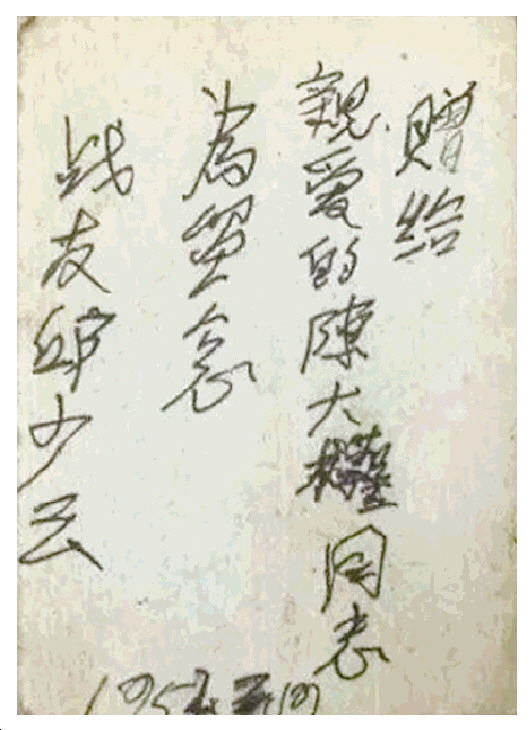 贈给
親爱的陳大權同志
為留念
战友邱少云